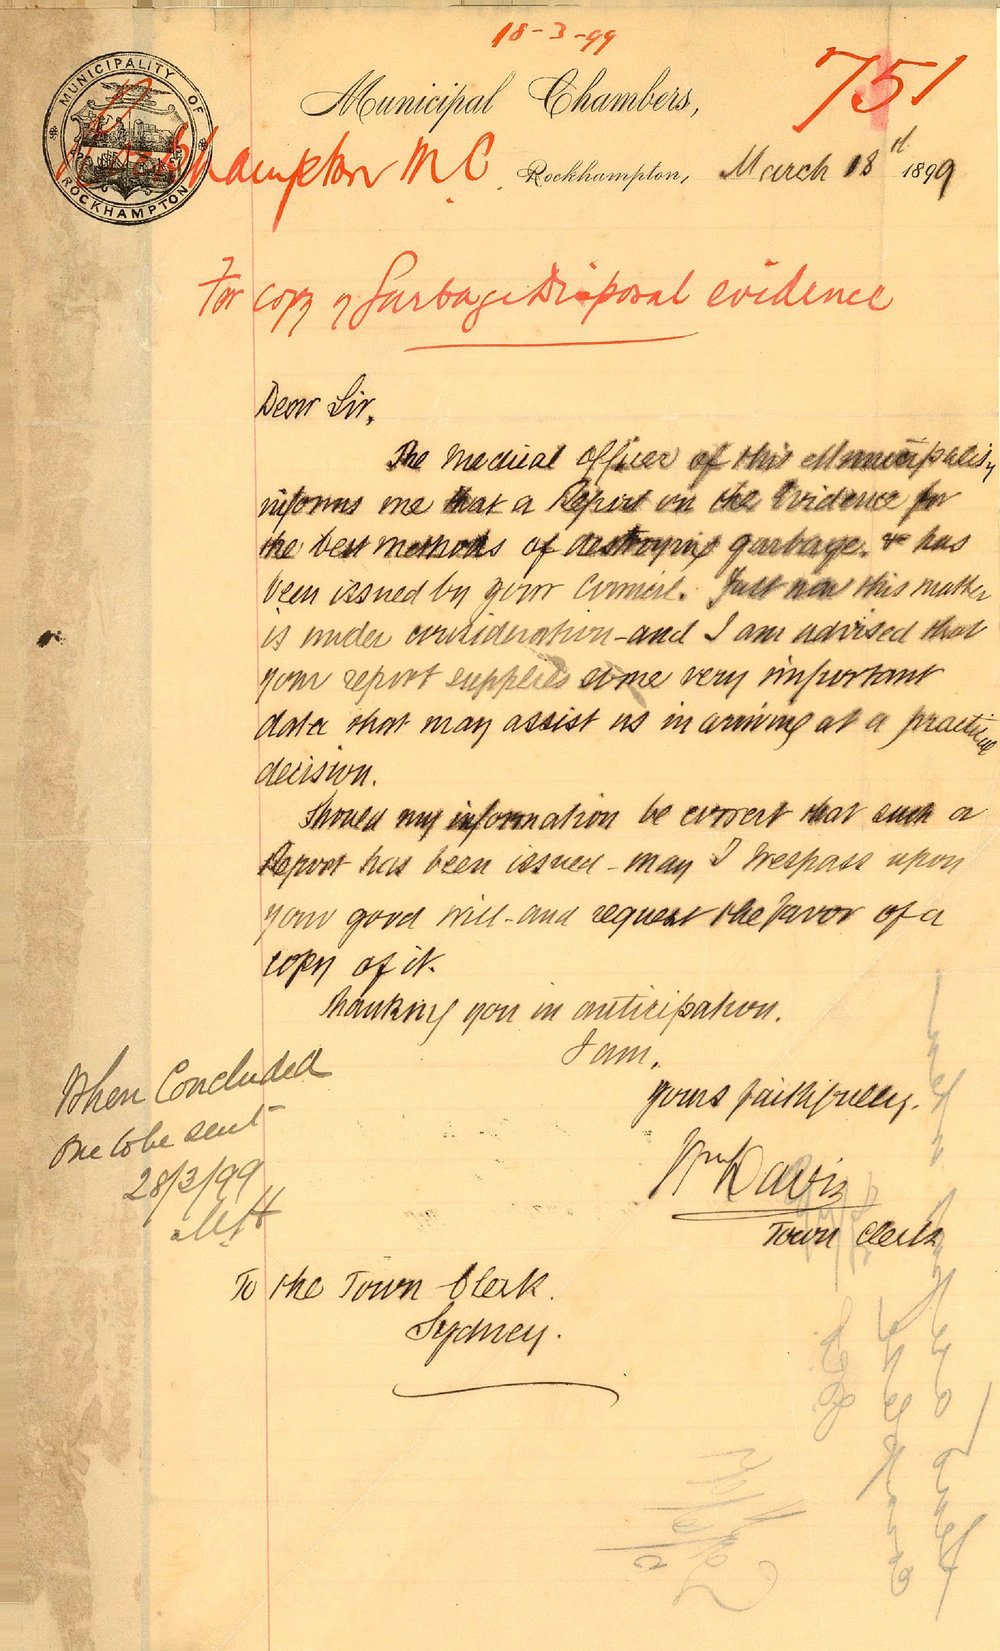 18-3-99
751
MUNICIPALITY OF ROCKHAMPTON
Municipal Chambers,
Rockhampton M.C.
Rockhampton, March 18th 1899
For copy of Garbage Disposal evidence
Dear Sir,
The Medical Officer of this Municipality
informs me that a Report on the Evidence for
the best methods of destroying garbage. has
been issued by your Council. Just now this matter
is under consideration - and I am advised that
your report supplies some very important
data that may assist us in arriving at a practical
decision.
Should my information be correct that such a
Report has been issued - may I trespass upon
your good will - and request the favor of a
copy of it.
Thanking you in anticipation.
I am,
Yours faithfully.
Wm Davis
Town Clerk
When Concluded
One to be sent
28/3/99
To the Town Clerk.
Sydney.